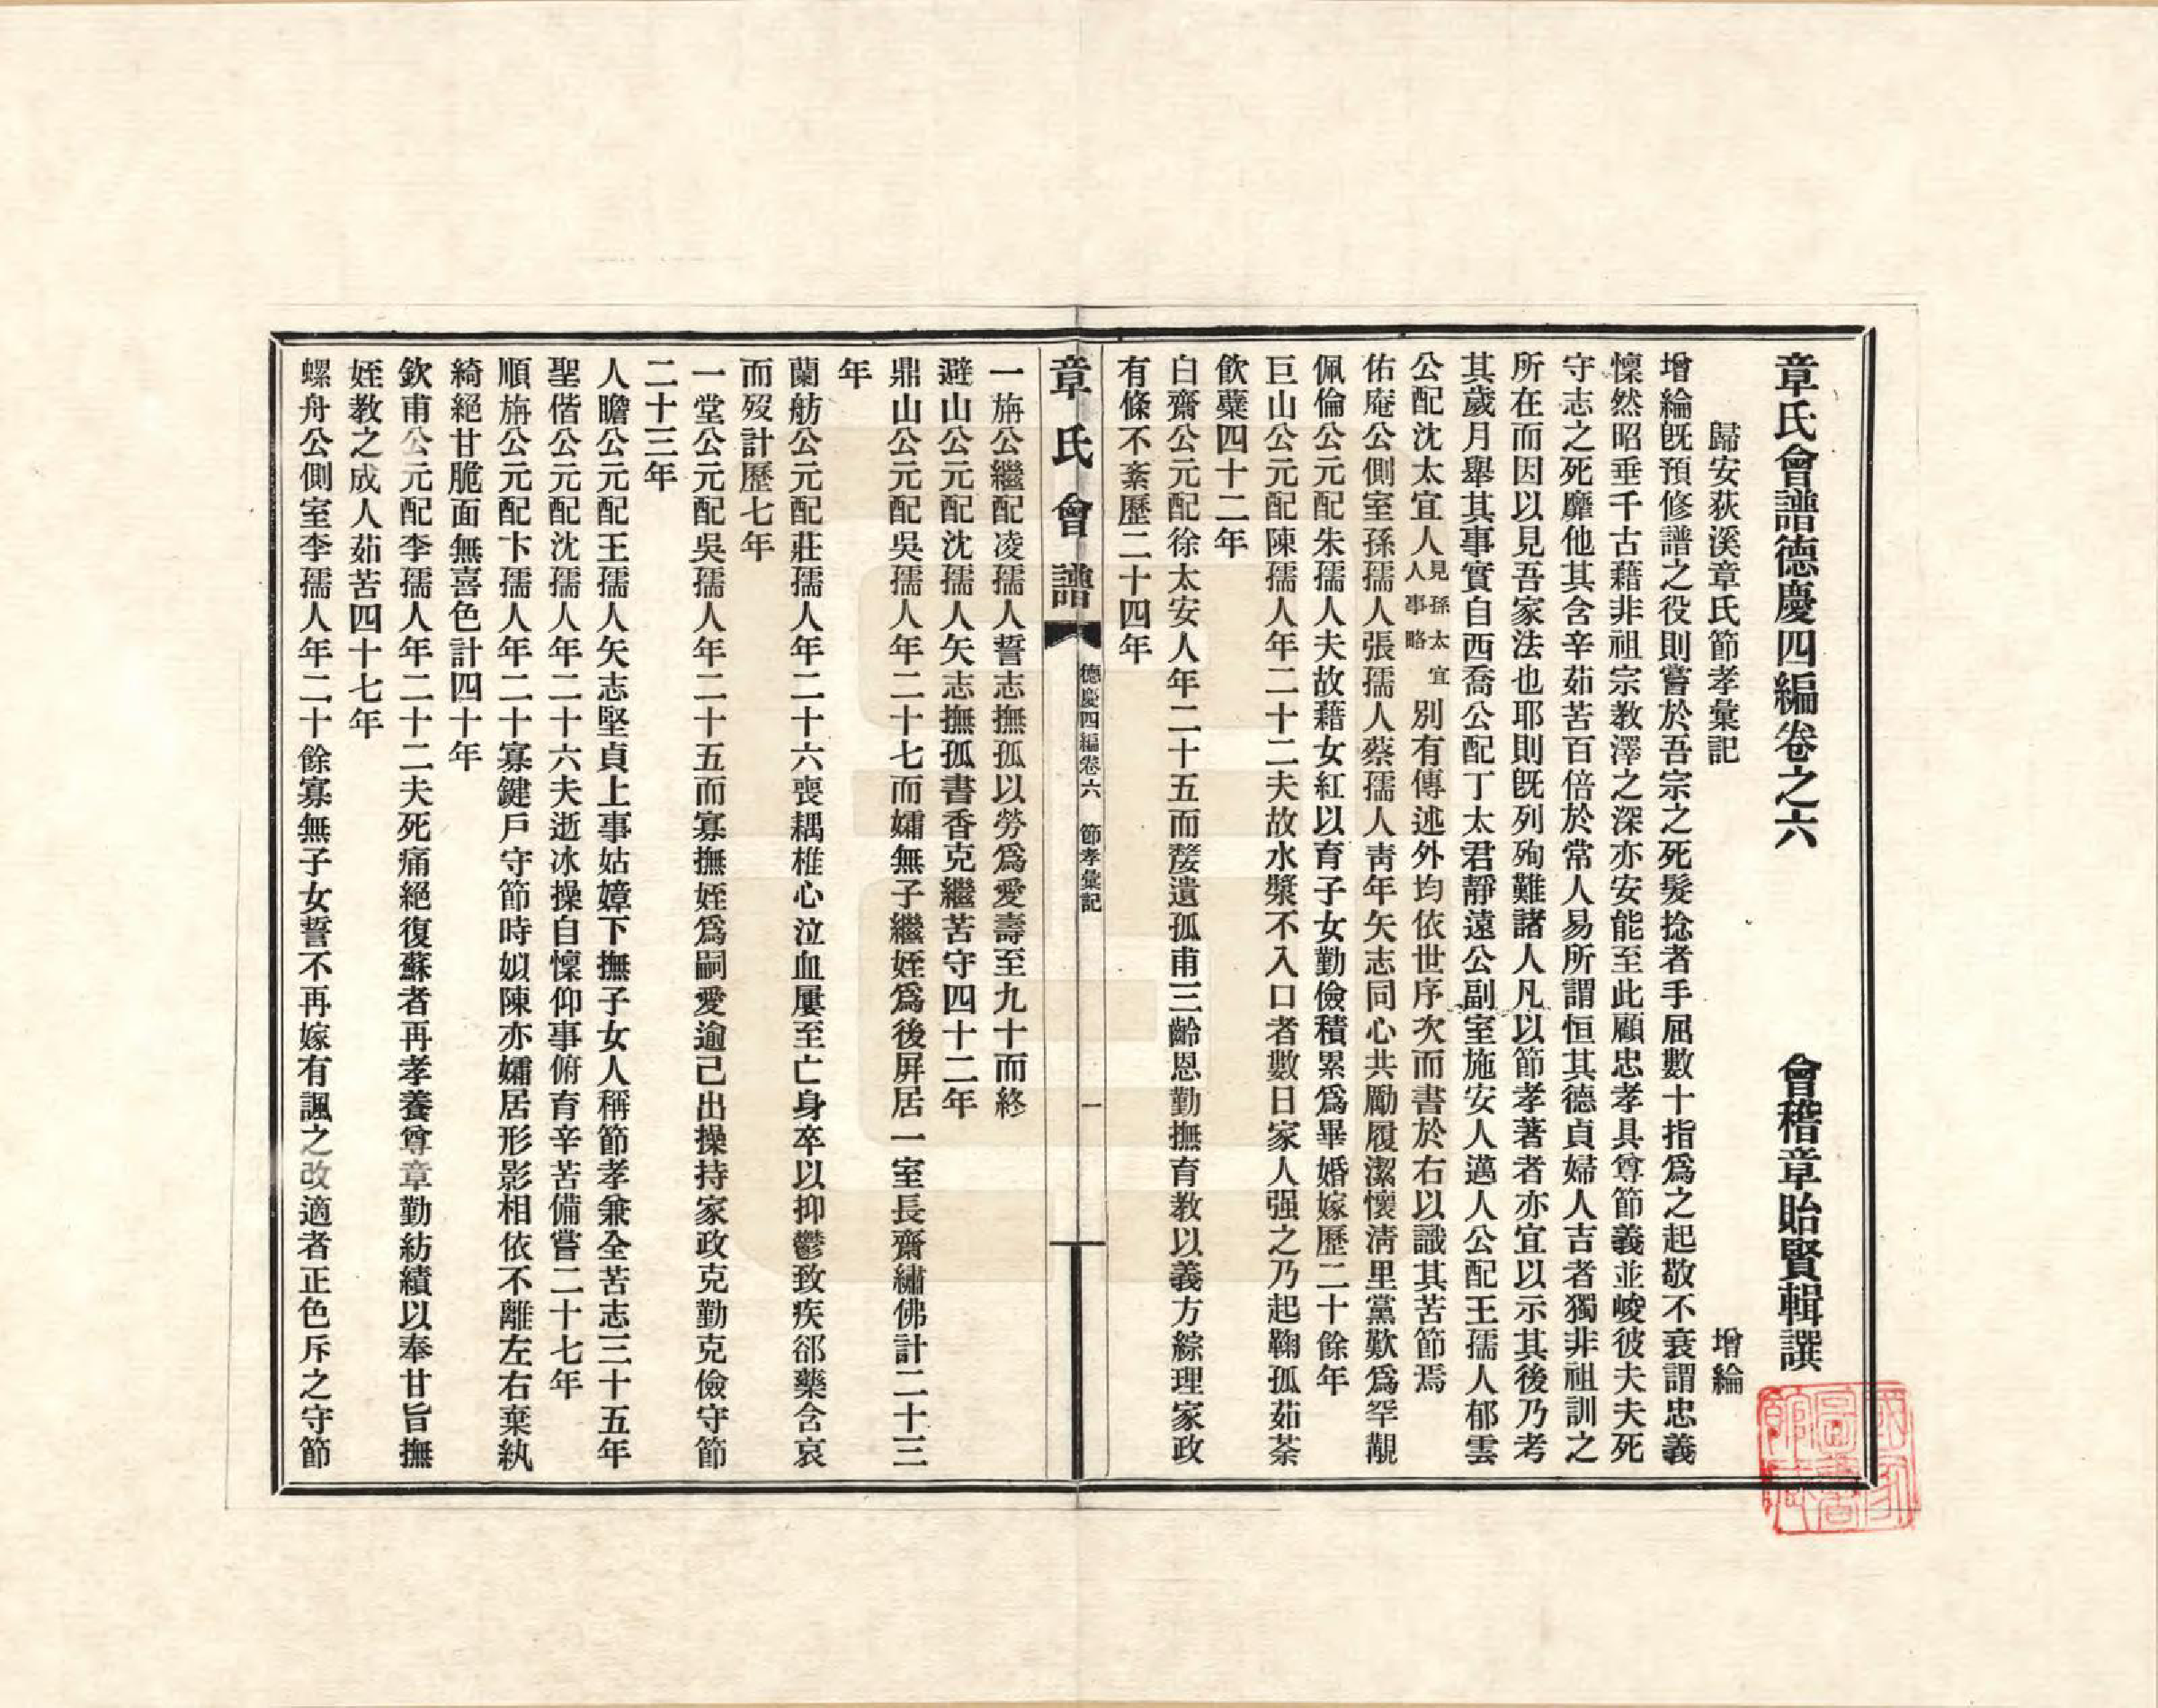 章氏會譜德慶四編卷之六　會稽章貽賢輯譔
歸安荻溪章氏節孝彙記　增綸
增綸旣預修譜之役則嘗於吾宗之死髮捻者手屈數十指爲之起敬不衰謂忠義
懍然昭垂千古藉非祖宗教澤之深亦安能至此顧忠孝具尊節義並峻彼夫夫死
守志之死靡他其含辛茹苦百倍於常人易所謂恒其德貞婦人吉者獨非祖訓之
所在而因以見吾家法也耶則旣列殉難諸人凡以節孝著者亦宜以示其後乃考
其歲月舉其事實自西喬公配丁太君靜遠公副室施安人邁人公配王孺人郁雲
公配沈太宜人見孫太宜人事略別有傳述外均依世序次而書於右以識其苦節焉
佑庵公側室孫孺人張孺人蔡孺人靑年矢志同心共勵履潔懷淸里黨歎爲罕覯
佩倫公元配朱孺人夫故藉女紅以育子女勤儉積累爲畢婚嫁歷二十餘年
巨山公元配陳孺人年二十二夫故水漿不入口者數日家人强之乃起鞠孤茹荼
飲蘗四十二年
白齋公元配徐太安人年二十五而嫠遺孤甫三齡恩勤撫育教以義方綜理家政
有條不紊歷二十四年
章氏會譜　德慶四編卷六　節孝彙記　一
一旃公繼配凌孺人誓志撫孤以勞爲愛壽至九十而終
避山公元配沈孺人矢志撫孤書香克繼苦守四十二年
鼎山公元配吳孺人年二十七而孀無子繼姪爲後屏居一室長齋繡佛計二十三
年
蘭舫公元配莊孺人年二十六喪耦椎心泣血屢至亡身卒以抑鬱致疾郤藥含哀
而歿計歷七年
一堂公元配吳孺人年二十五而寡撫姪爲嗣愛逾己出操持家政克勤克儉守節
二十三年
人瞻公元配王孺人矢志堅貞上事姑嫜下撫子女人稱節孝兼全苦志三十五年
聖偕公元配沈孺人年二十六夫逝冰操自懍仰事俯育辛苦備嘗二十七年
順旃公元配卞孺人年二十寡鍵戶守節時姒陳亦孀居形影相依不離左右棄紈
綺絕甘脆面無喜色計四十年
欽甫公元配李孺人年二十二夫死痛絕復蘇者再孝養尊章勤紡績以奉甘旨撫
姪教之成人茹苦四十七年
螺舟公側室李孺人年二十餘寡無子女誓不再嫁有諷之改適者正色斥之守節